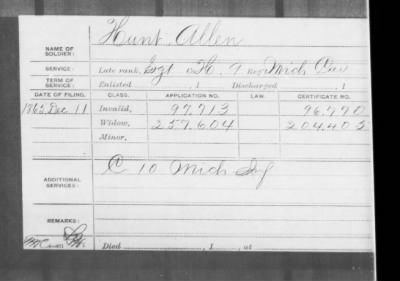 Hunt, Allen
NAME OF SOLDIER:
SERVICE: Late rank, Sgt Co H, 9 Reg't Mich Cav
TERM OF SERVICE: Enlisted 1 Discharged 1
DATE OF FILING. CLASS. APPLICATION NO. LAW. CERTIFICATE NO.
1863, Dec. 11 Invalid, 97.713 96.770
Widow, 257.604 204.403
Minor,
ADDITIONAL SERVICES: C 10 Mich Inf
REMARKS:
Died , 1 , at